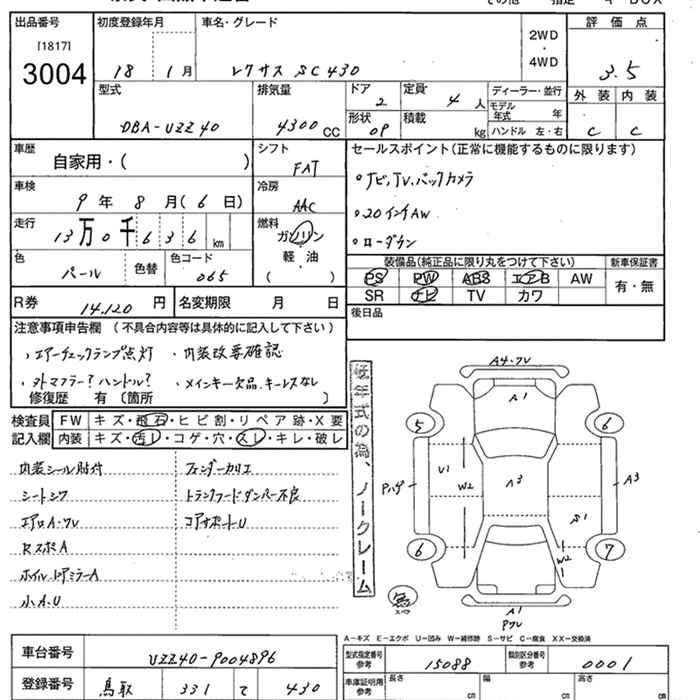 出品番号
[1817]
3004
初度登録年月
18 1月
車名・グレード
レクサス SC430
2WD
・
4WD
評価点
3.5
外装 内装
C C
型式
DBA-UZZ40
排気量
4300CC
ドア
2
定員
4人
形状
OP
積載
kg
ディーラー・並行
モデル年式 年
ハンドル 左・右
車歴
自家用・( )
シフト
FAT
セールスポイント(正常に機能するものに限ります)
・ナビ,TV,バックカメラ
・20インチAW
・ローダウン
車検
9年 8月(6日)
冷房
AAC
走行
13万0千636km
燃料
ガソリン
軽・油
( )
色
パール
色替
色コード
065
装備品(純正品に限り丸をつけて下さい)
PS PW ABS エアB AW
SR ナビ TV カワ
新車保証書
有・無
R券 14.120円
名変期限 月 日
後日品
注意事項申告欄(不具合内容等は具体的に記入して下さい)
・エアーチェックランプ点灯 ・内装改等確認
・外トマフラー?ハンドル? ・メインキー欠品.キーレスなし
修復歴 有(箇所 )
検査員記入欄
FW キズ・飛石・ヒビ割・リペア跡・X要
内装 キズ・汚レ・コゲ・穴・スレ・キレ・破レ
内装シール貼付
シートシワ
エアロA・ワレ
RスポA
ホイル,ドアミラーA
小A.U
フェンダーカリエ
トランクフードダンパー不良
コアサポートU
旧年式の為、ノークレーム
A4・ワレ
A1
5
6
U1
W2
A3
A3
S1
6
7
W2
A1
Pワレ
A-キズ E-エクボ U-凹み W-補修跡 S-サビ C-腐食 XX-交換済
車台番号
UZZ40-9004896
登録番号
鳥取 331 て 430
型式指定番号参考
15088
類別区分番号参考
0001
車庫証明用参考
長さ cm
幅 cm
高さ cm